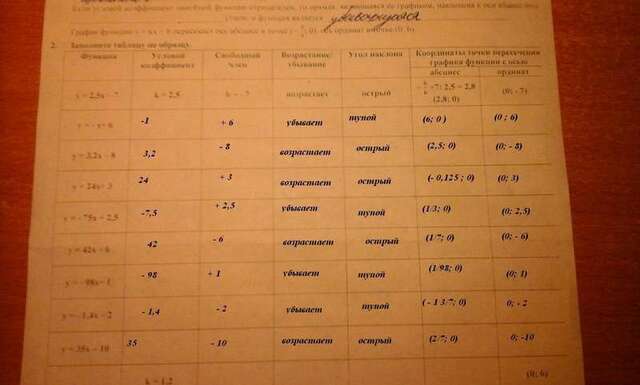 Если угловой коэффициент линейной функции отрицателен, то прямая, являющаяся ее графиком, наклонена к оси абсцисс под
углом, а функция является убывающаяся
График функции y = kx + b пересекает ось абсцисс в точке
2. Заполните таблицу по образцу.
Функция Угловой коэффициент Свободный член Возрастание/убывание Угол наклона Координаты точки пересечения графика функции с осью
абсцисс ординат
y = 2,5x – 7 k = 2,5 b = – 7 возрастает острый 7: 2,5 = 2,8 (2,8; 0) (0; - 7)
y = – x+ 6 -1 + 6 убывает тупой (6; 0 ) (0 ; 6)
y = 3,2x – 8 3,2 - 8 возрастает острый (2,5; 0) (0; - 8)
y = 24x+ 3 24 + 3 возрастает острый (- 0,125 ; 0) (0; 3)
y = – 75x + 2,5 -7,5 + 2,5 убывает тупой (1/3; 0) (0; 2,5)
y = 42x – 6 42 - 6 возрастает острый (1/7; 0) (0; - 6)
y = – 98x– 1 - 98 + 1 убывает тупой (1/98; 0) (0; 1)
y = – 1,4x – 2 - 1,4 - 2 убывает тупой (- 1 3/7; 0) 0; - 2
y = 35x – 10 35 - 10 возрастает острый (2/7; 0) 0; -10
k = 1,2 (0; 6)